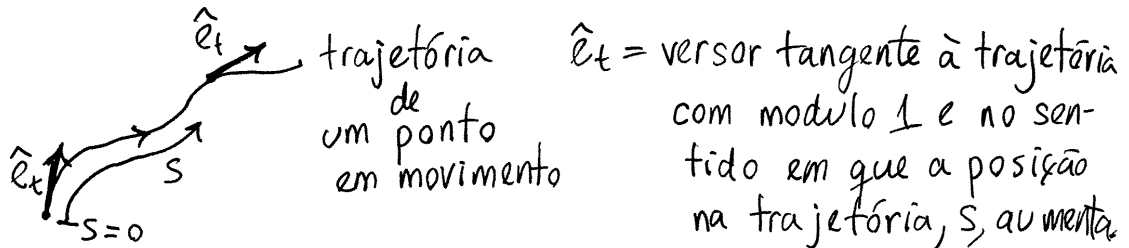 ê_t
trajetória
de
um ponto
em movimento
ê_t
s
s=0
ê_t = versor tangente à trajetória
com modulo 1 e no sen-
tido em que a posição
na trajetória, s, aumenta.